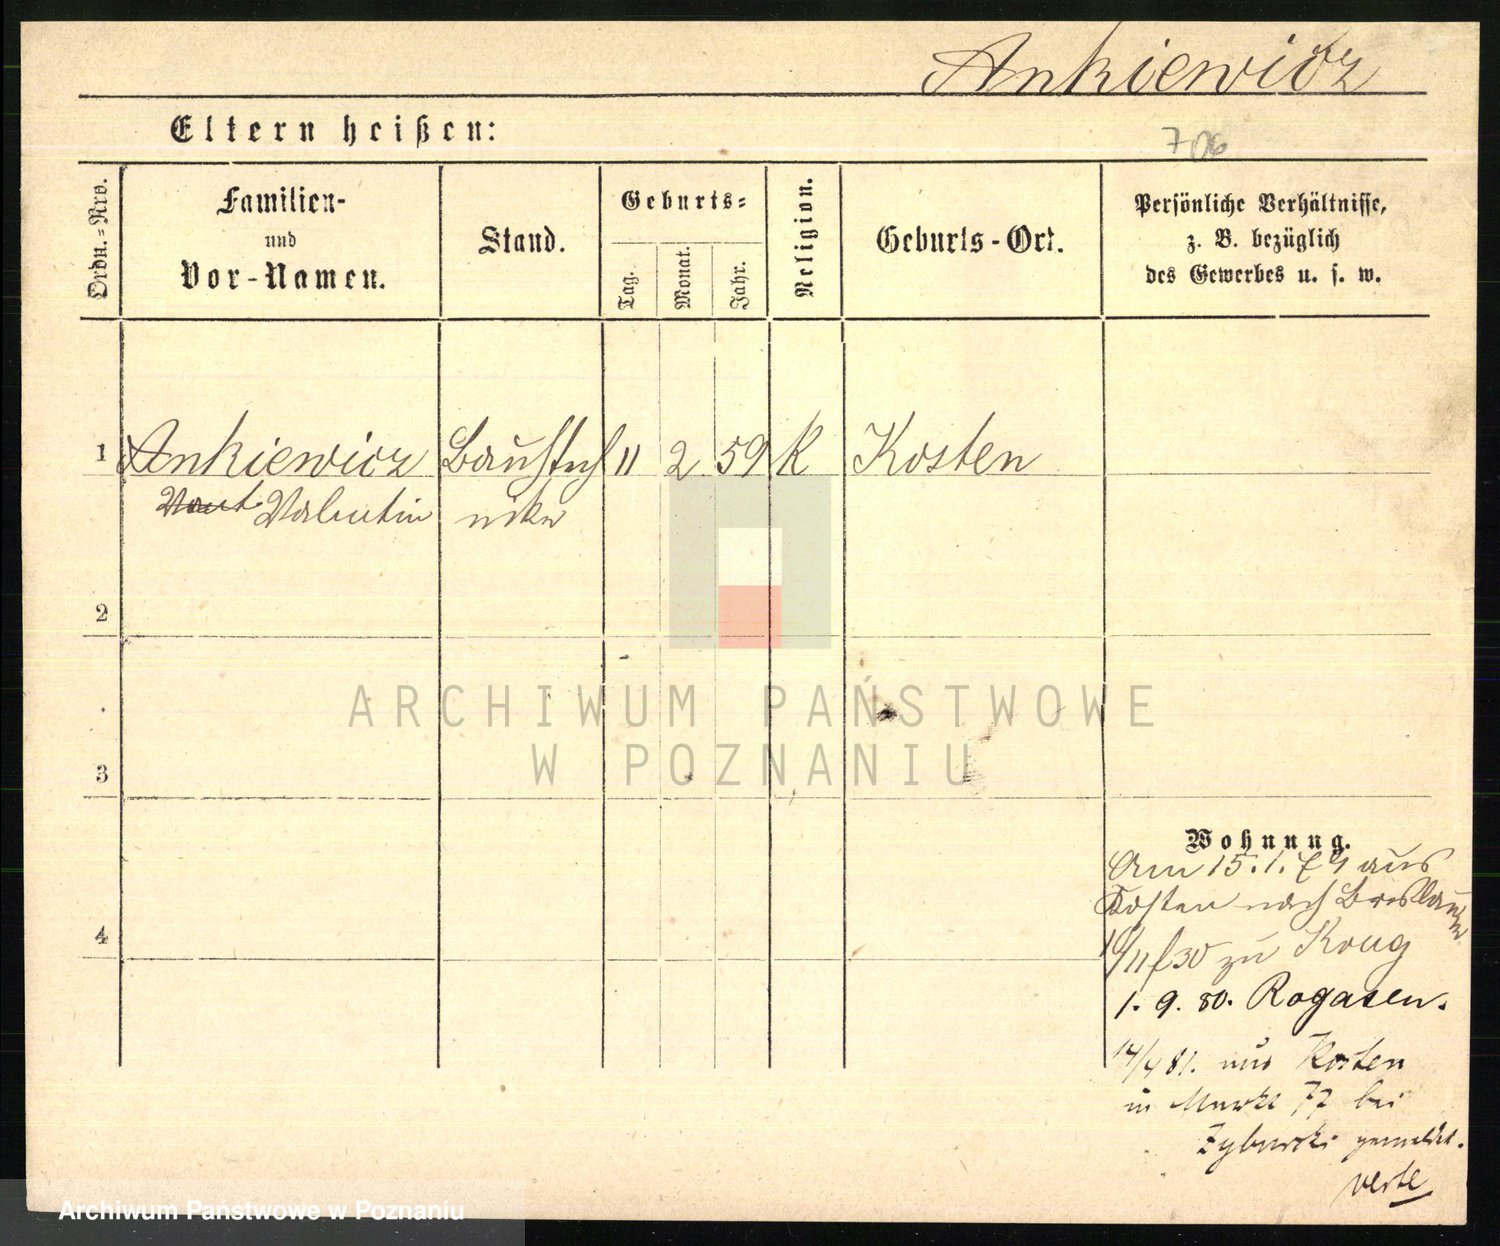 Ankiewicz
Eltern heißen:
706
Ordn.-Nro.
Familien-
und
Vor-Namen.
Stand.
Geburts-
Tag.
Monat.
Jahr.
Religion.
Geburts-Ort.
Persönliche Verhältnisse,
z. B. bezüglich
des Gewerbes u. s. w.
1 Ankiewicz Bautech 11 2 59 K Kosten
Valentin niker
2
3
4
ARCHIWUM PAŃSTWOWE
W POZNANIU
Wohnung.
Am 15.1.79 aus
Kosten nach
zu Krug
1. 9. 80. Rogasen.
14/4 81. aus Kosten
in Markt 77 bei
gemeldet.
verte
Archiwum Państwowe w Poznaniu